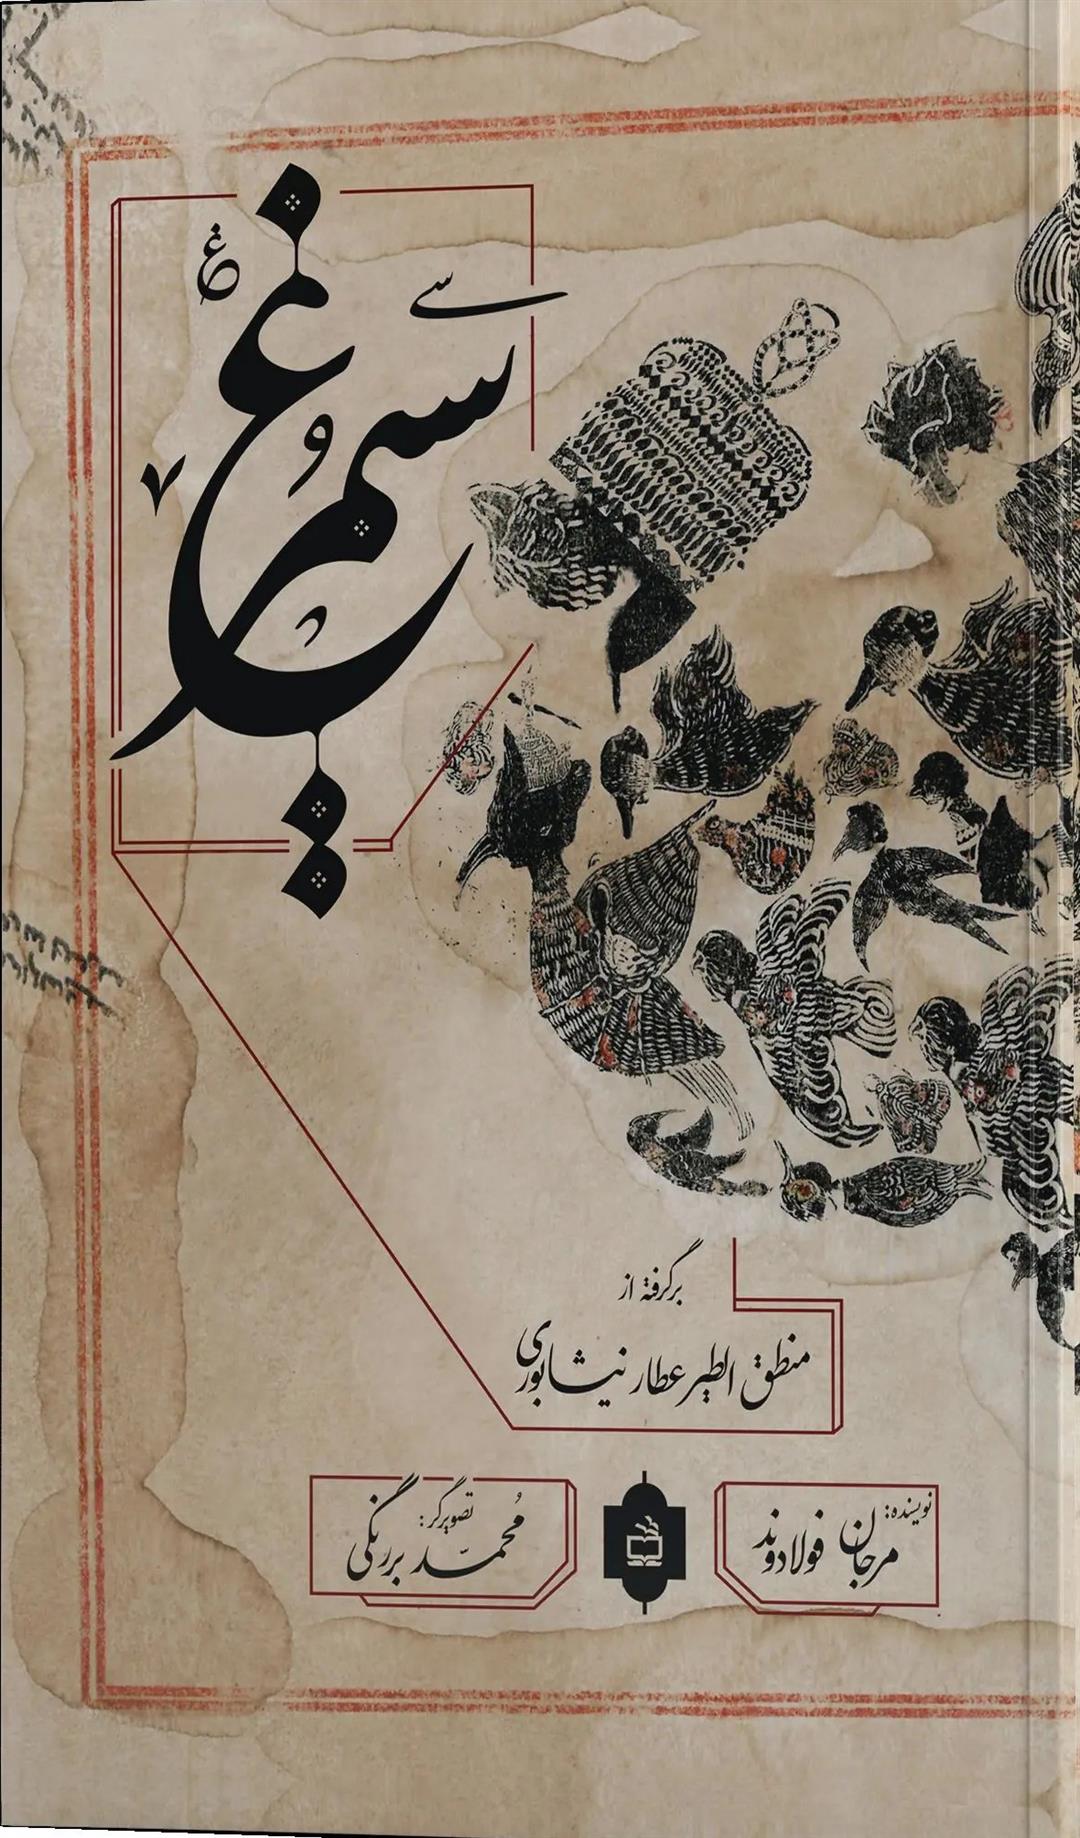 سیمرغ
برگرفته از
منطق الطیر عطار نیشابوری
نویسنده:
مرجان فولادوند
تصویرگر:
محمّد بررنگی